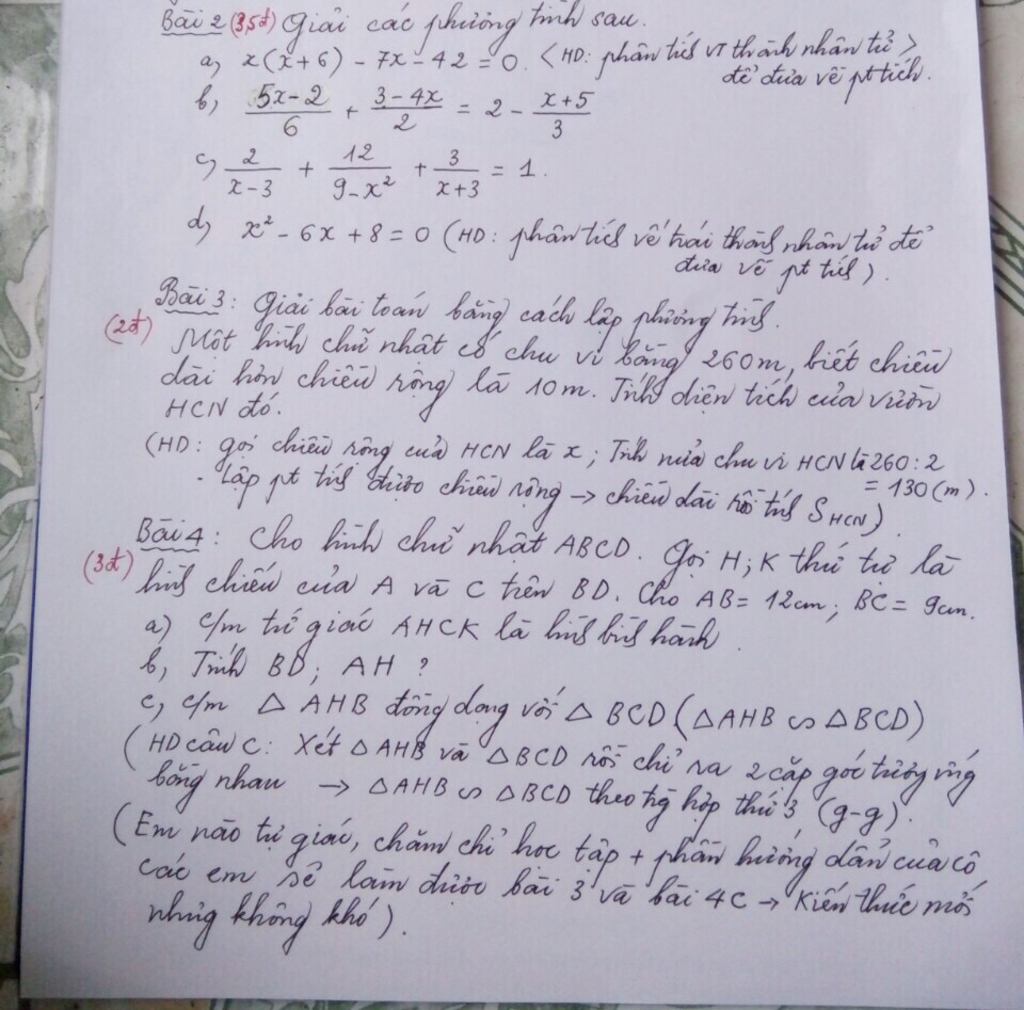 Bài 2 (3,5đ) Giải các phương tình sau.
a, x(x+6) - 7x - 42 = 0. <HD: phân tích VT thành nhân tử>
để đưa về pt tích.
b, \frac{5x-2}{6} + \frac{3-4x}{2} = 2 - \frac{x+5}{3}
c, \frac{2}{x-3} + \frac{12}{9-x^2} + \frac{3}{x+3} = 1.
d, x² - 6x + 8 = 0 (HD: phân tích vế trái thành nhân tử để
đưa về pt tích).
Bài 3: Giải bài toán bằng cách lập phương tình.
(2đ) Một hình chữ nhât có chu vi bằng 260m, biết chiều
dài hơn chiều rộng là 10m. Tính diện tích của vườn
HCN đó.
(HD: gọi chiều rông của HCN là x; Tính nửa chu vi HCN là 260:2
= 130(m).
- Lập pt tính được chiều rộng → chiều dài rồi tính S_{HCN})
Bài 4: Cho hình chữ nhật ABCD. Gọi H; K thứ tự là
(3đ) hình chiếu của A và C trên BD. Cho AB = 12cm; BC = 9cm.
a) c/m tứ giác AHCK là hình bình hành.
b, Tính BD; AH ?
c, c/m △ AHB đồng dạng với △ BCD (△AHB ∽ △BCD)
(HD câu C: Xét △AHB và △BCD rồi chỉ ra 2 cặp góc tương ứng
bằng nhau → △AHB ∽ △BCD theo trg hợp thứ 3 (g-g).
(Em nào tự giác, chăm chỉ học tập + phần hướng dẫn của cô
các em sẽ làm được bài 3 và bài 4C → Kiến thức mới
nhưng không khó).